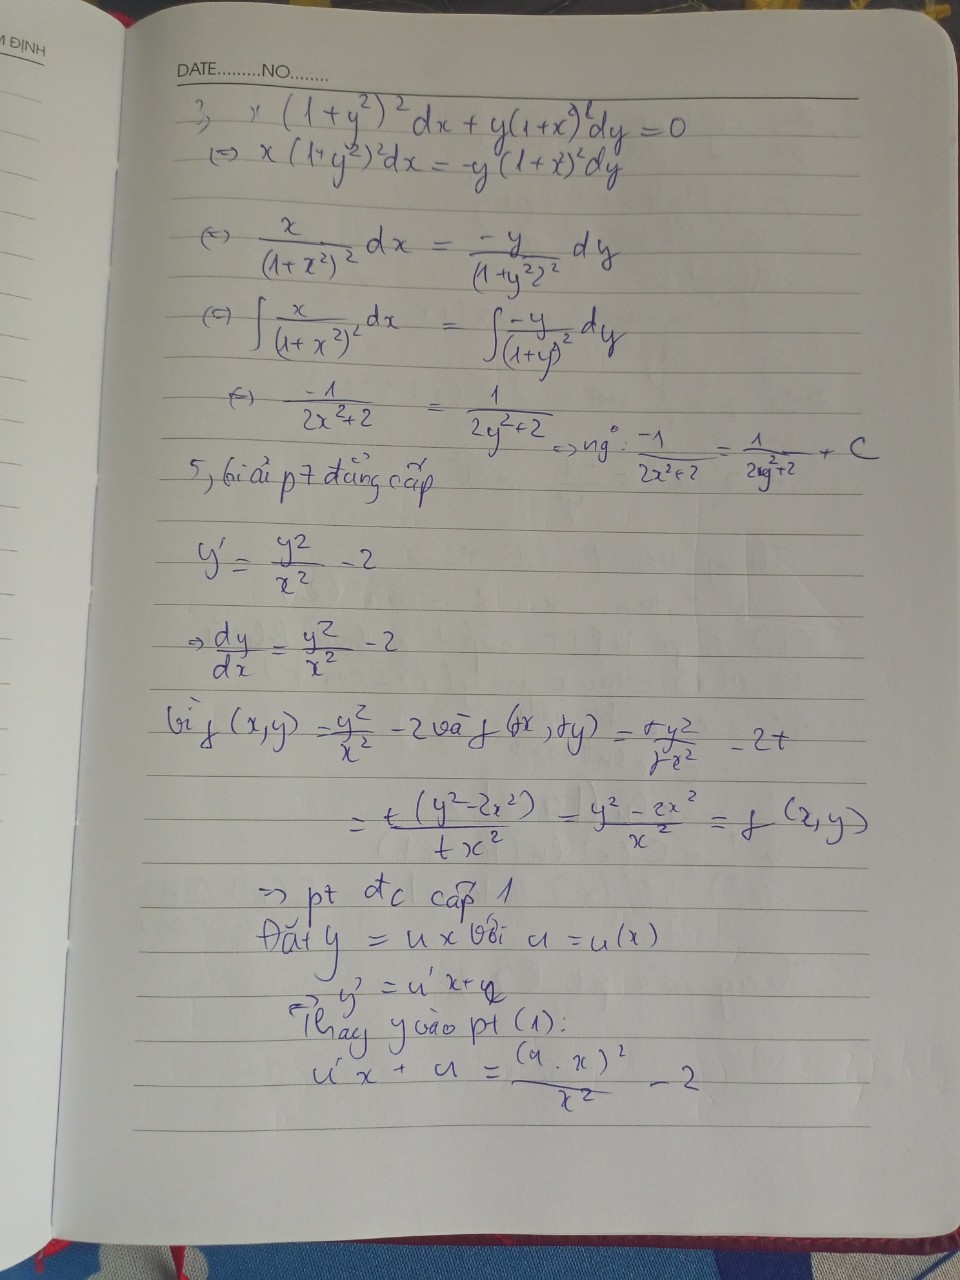 M ĐỊNH
DATE.........NO........
3, x (1+y²)² dx + y(1+x²)² dy = 0
(=) x (1+y²)² dx = -y (1+x²)² dy
(=) x/(1+x²)² dx = -y/(1+y²)² dy
(=) ∫ x/(1+x²)² dx = ∫ -y/(1+y)² dy
(=) -1/(2x²+2) = 1/(2y²+2) => ng⁰ : -1/(2x²+2) = 1/(2y²+2) + C
5, Giải pt đẳng cấp
y' = y²/x² - 2
=> dy/dx = y²/x² - 2
Vì f (x,y) = y²/x² - 2 và f (tx, ty) = ty²/tx² - 2t
= t (y²-2x²)/tx² = y² - 2x²/x² = f (x,y)
=> pt đc cấp 1
Đặt y = u x với u = u(x)
=> y' = u' x + u
Thay y vào pt (1):
u' x + u = (u . x)²/x² - 2